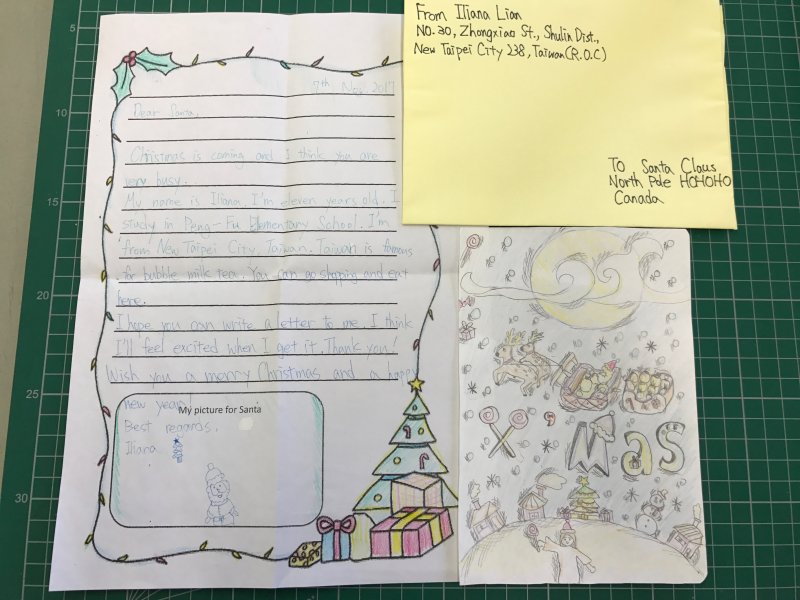 7th, Nov, 2017
Dear Santa,
Christmas is coming and I think you are
very busy.
My name is Iliana. I'm eleven years old. I
study in Peng-Fu Elementary School. I'm
from New Taipei City, Taiwan. Taiwan is famous
for bubble milk tea. You can go shopping and eat
here.
I hope you can write a letter to me. I think
I'll feel excited when I get it. Thank you!
Wish you a merry Christmas and a happy
new year!
My picture for Santa
Best regards,
Iliana
From Iliana Lian
NO.20, Zhongxiao St., Shulin Dist.,
New Taipei City 238, Taiwan(R.O.C)
To Santa Claus
North Pole HOHOHO
Canada
X'Mas
5
10
15
20
25
30